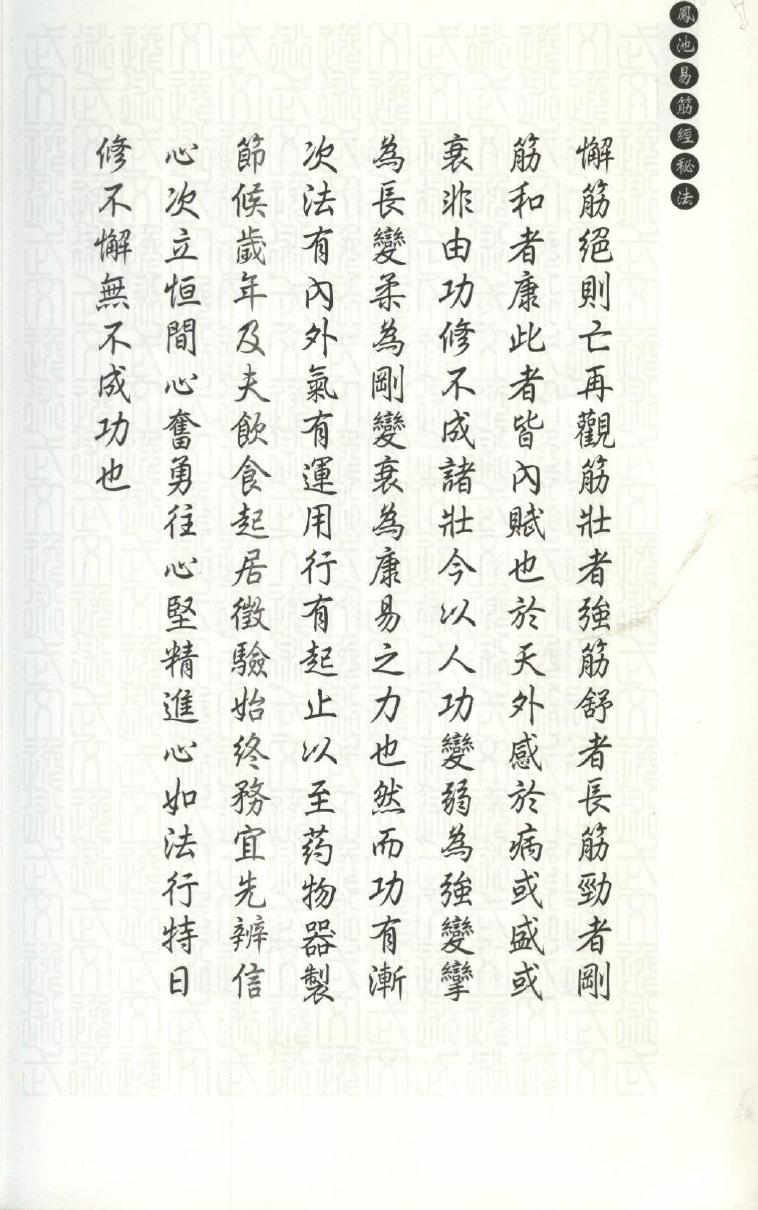 鳳池易筋經秘法
懈筋絕則亡再觀筋壯者強筋舒者長筋勁者剛
筋和者康此者皆內賦也於天外感於病或盛或
衰非由功修不成諸壯今以人功變弱為強變攣
為長變柔為剛變衰為康易之力也然而功有漸
次法有內外氣有運用行有起止以至药物器製
節候歲年及夫飲食起居徵驗始終務宜先辦信
心次立恒間心奮勇往心堅精進心如法行特日
修不懈無不成功也